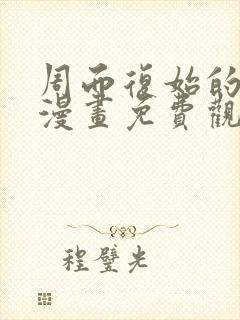 周而復始的
漫畫免費觀
程璧光